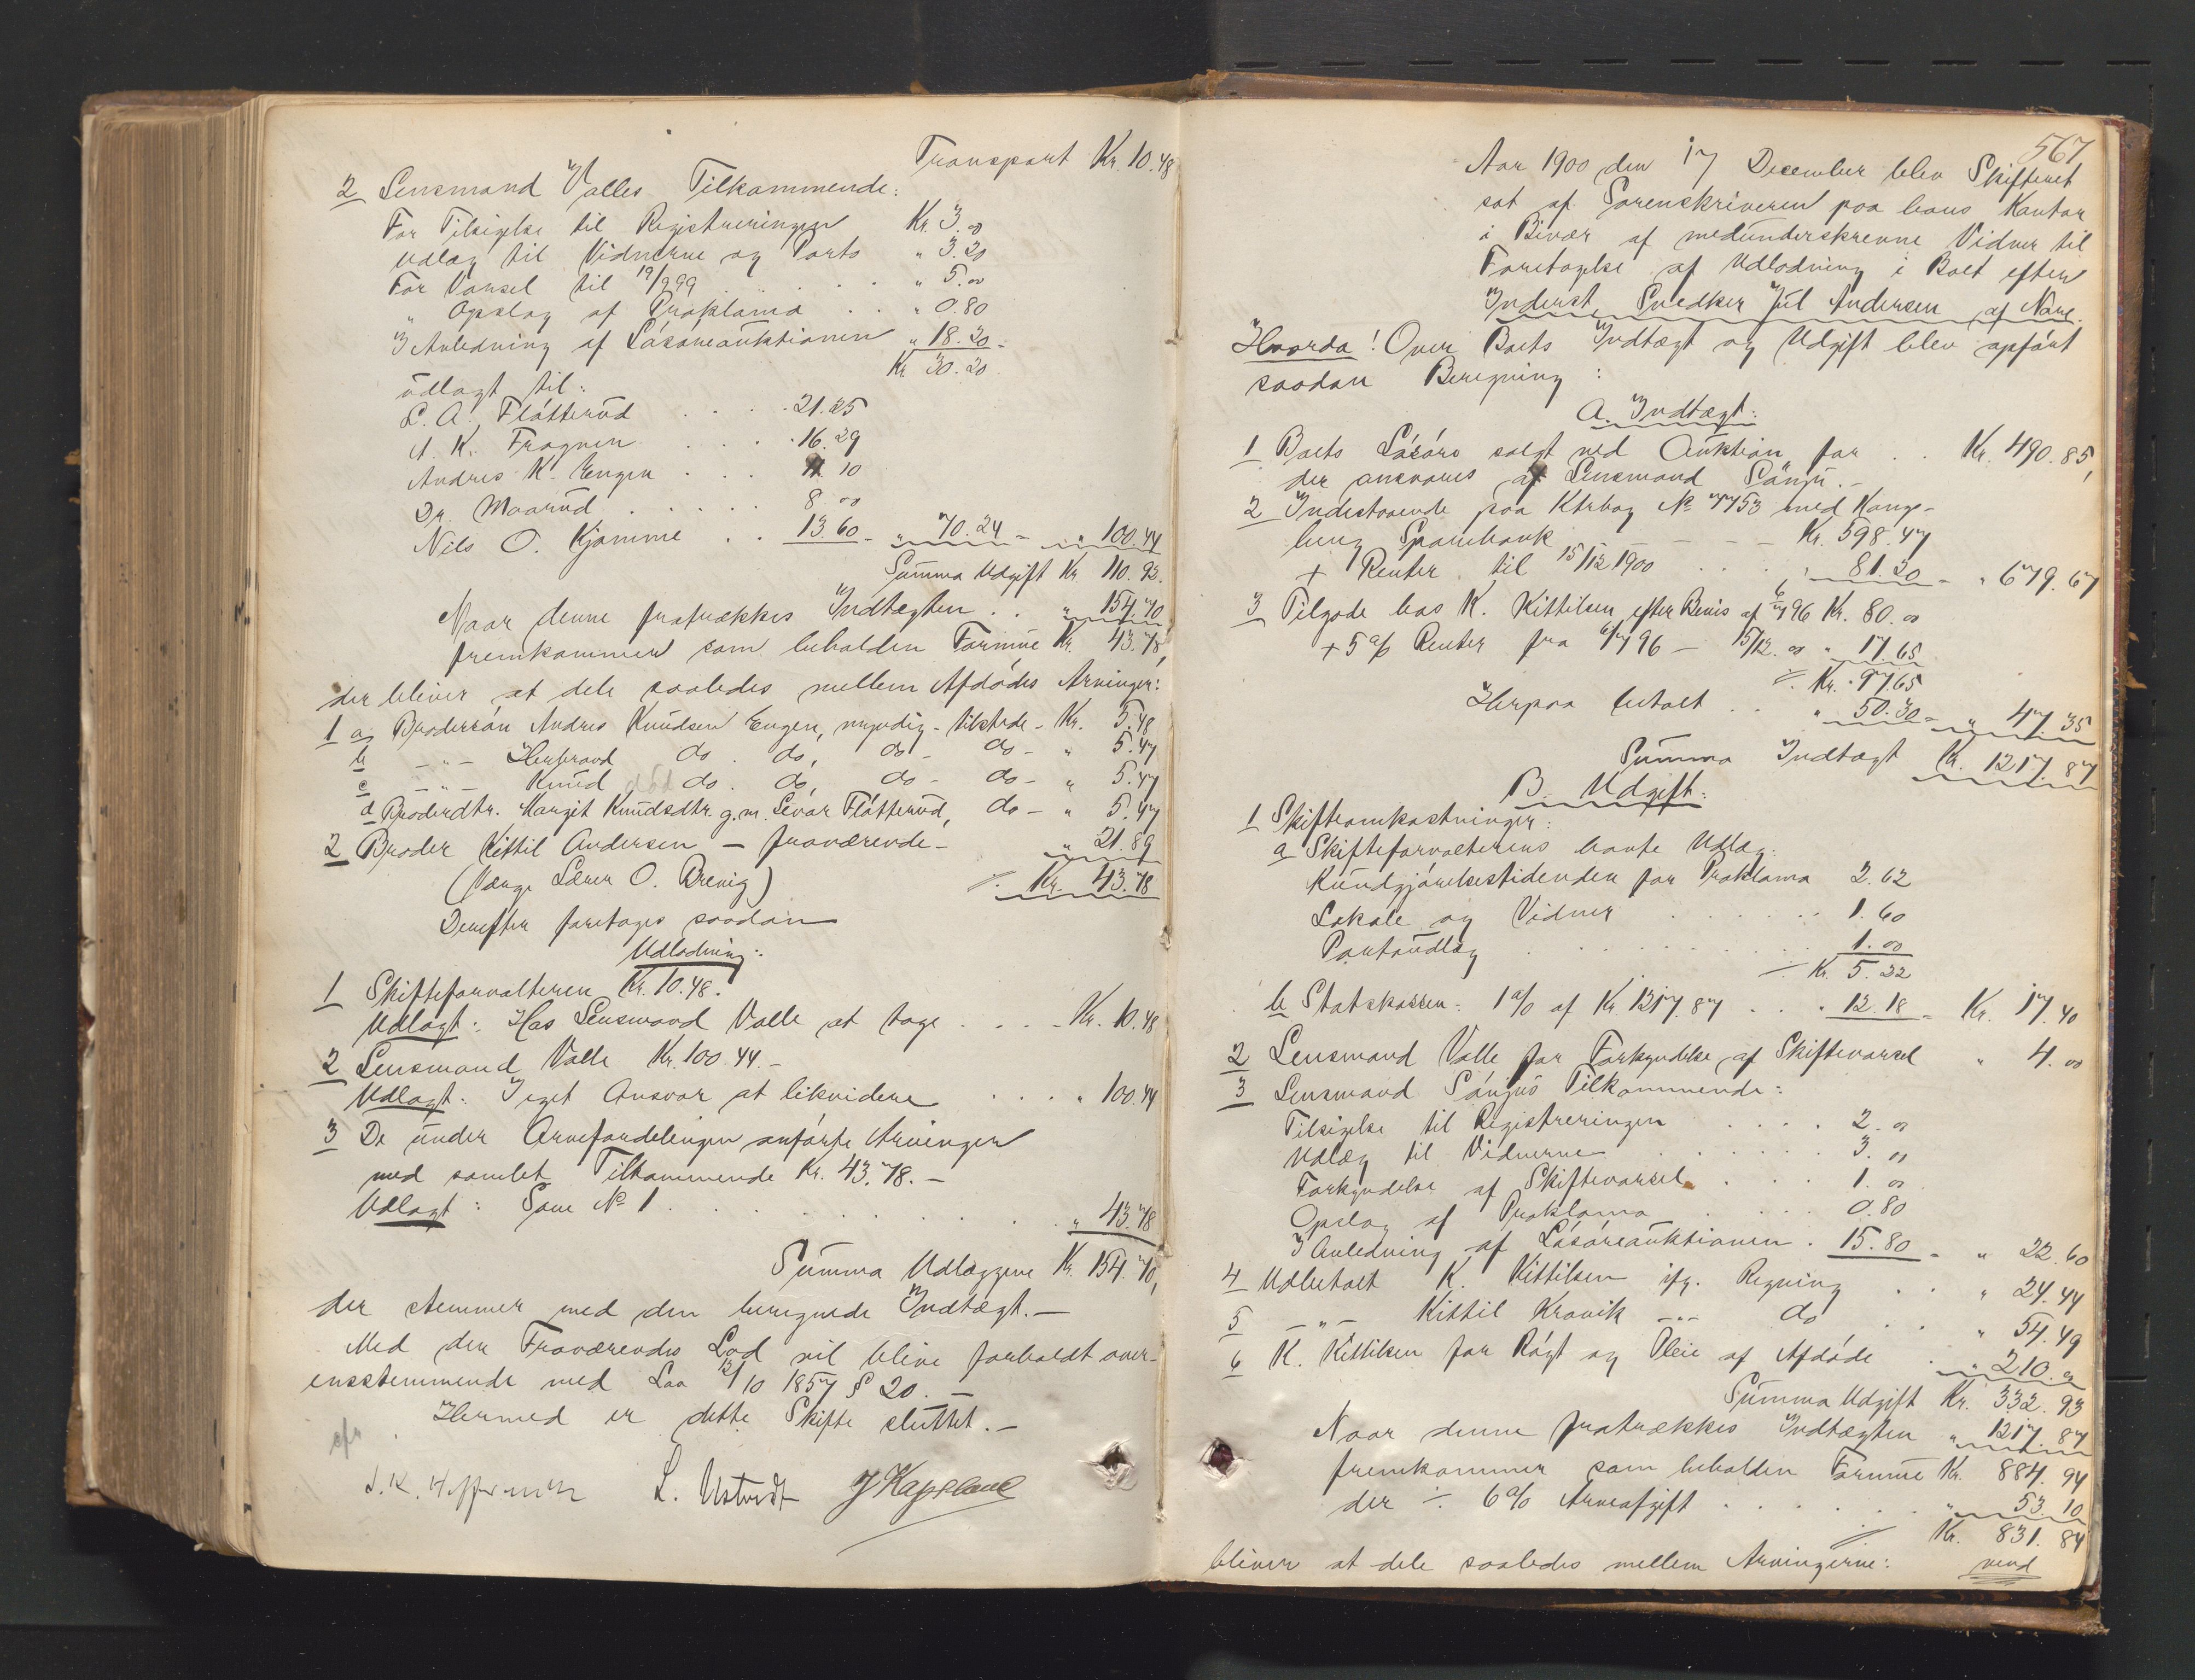 Transport Kr. 10.48
2 Lensmand Valles Tilkommende:
For Tilsigelse til Registreringen Kr. 3.00
Udlæg til Vidnerne og Porto " 3.20
For Varsel til 19/9 99 . . . " 5.00
" Opslag af Proklama . . " 0.80
I Anledning af Løsøreauktionen " 18.20 -
Kr. 30.20
udlagt til:
L. A. Fløtterud . . . . 21.25
A. K. Frognen . . . . 16.29
Andres K. Engen . . . 11.10
Dr. Maarud . . . . . 8.00
Nils O. Kjomme . . 13.60 - " 70.24 - " 100.44
Summa Udgift Kr. 110.92.
Naar denne fratrækkes Indtægten . . " 154.70,
fremkommer som beholden Formue Kr. 43.78,
der bliver at dele saaledes mellem Afdødes Arvinger:
1 a, Brodersøn Andres Knudsen Engen, myndig - tilstede - Kr. 5.48
b -"- Herbrand do. do, do - do - " 5.47
c -"- Knud do. do, do - do - " 5.47
d Broderdtr. Margit Knudsdtr. g.m. Sevar Fløtterud, do - " 5.47
2 Broder Kittil Andersen - fraværende - " 21.89
(Værge Lærer O. Brevig) ./. Kr. 43.78
Derefter foretages saadan
Udlodning:
1 Skifteforvalteren Kr. 10.48.
Udlagt: Hos Lensmand Valle at tage . . . . Kr. 10.48
2 Lensmand Valle Kr. 100.44. -
Udlagt: I eget Ansvar at likvidere . . . . " 100.44
3 De under Arvefordelingen anførte Arvinger
med samlet Tilkommende Kr. 43.78. -
Udlagt: Som No 1 . . . . . . . . " 43.78
Summa Udlæggene Kr. 154.70,
der stemmer med den beregnede Indtægt. -
Med den Fraværendes Lod vil blive forholdt over-
ensstemmende med Lov 12/10 1857 § 20. -
Hermed er dette Skifte sluttet. -
L. Ustvedt J Kapeland
567
Aar 1900 den 17 December blev Skifteret
sat af Sorenskriveren paa hans Kontor
i Bivær af medunderskrevne Vidner til
Foretagelse af Udlodning i Boet efter
Inderst, Snedker Jul Andersen af Nore.
Hvorda! Over Boets Indtægt og Udgift blev opført
saadan Beregning:
A. Indtægt:
1 Boets Løsøre solgt ved Auktion for . . Kr. 490.85,
der ansvares af Lensmand Sønju. -
2 Indestaaende paa Ktrbog No 7753 med Kongs-
berg Sparebank - - - - Kr. 598.47
+ Renter til 15/12 1900 . . . " 81.20 - " 679.67
3 Tilgode hos K. Kittilsen efter Bevis af 6/7 96 Kr. 80.00
+ 5 % Renter fra 6/7 96 - 15/12.00 " 17.65
./. Kr. 97.65
Herpaa betalt . . " 50.30 - " 47.35
Summa Indtægt Kr. 1217.87
B. Udgift:
1 Skifteomkostninger:
a Skifteforvalterens havte Udlæg:
Kundgjørelsestidenden for Proklama 2.62
Lokale og Vidner . . . . . . 1.60
Portoudlæg . . . . . . . . 1.00
- Kr. 5.22
b Statskassen: 1 % af Kr. 1217.87 . . " 12.18 - Kr. 17.40
2 Lensmand Valle for Forkyndelse af Skiftevarsel " 4.00
3 Lensmand Sønjus Tilkommende:
Tilsigelse til Registreringen . . . . 2.00
Udlæg til Vidnerne . . . . . . 3. "
Forkyndelse af Skiftevarsel . . . 1.00
Opslag af Proklama . . . . 0.80
I Anledning af Løsøreauktionen . 15.80 - " 22.60
4 Udbetalt K. Kittilsen ifg. Regning . . " 24.44
5 -"- Kittil Kravik -"- do . . " 54.49
6 K. Kittilsen for Røgt og Pleie af Afdøde . " 210.00
Summa Udgift Kr. 332.93
Naar denne fratrækkes Indtægten " 1217.87
fremkommer som beholden Formue Kr. 884.94
der ./. 6 % Arveafgift . . . . . . " 53.10
./. Kr. 831.84
bliver at dele saaledes mellem Arvingerne: vend